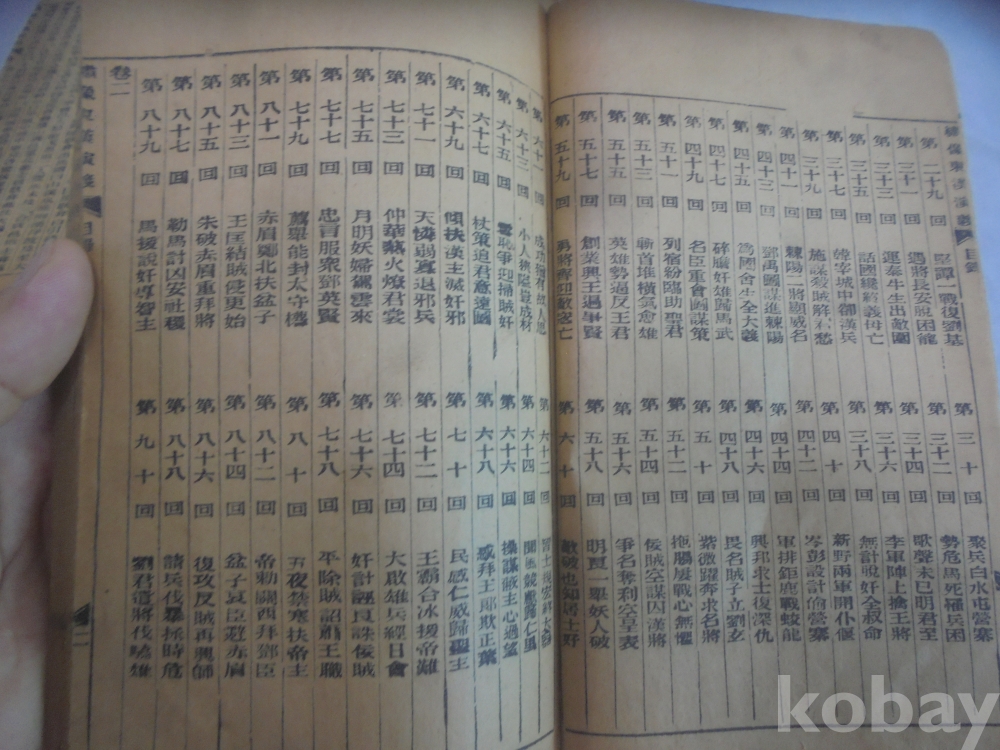 繡像東漢演義 目錄
第二十九回 堅譚一戰復劉基
第三十回 聚兵白水屯營寨
第三十一回 遇將長安脫困籠
第三十二回 勢危馬死極兵困
第三十三回 運泰牛生出敵圍
第三十四回 歌聲未已明君至
第三十五回 話國纔終義母亡
第三十六回 李軍陣上擒王將
第三十七回 韓宰城中卻漢兵
第三十八回 無計脫奸全叔命
第三十九回 施謀殺賊解君愁
第四十回 新野兩軍開仆偃
第四十一回 棘陽二將顯威名
第四十二回 岑彭設計偷營寨
第四十三回 鄧禹圖謀進棘陽
第四十四回 軍排鉅鹿戰蛟龍
第四十五回 為國舍生全大義
第四十六回 興邦求士復深仇
第四十七回 碎臠奸雄歸馬武
第四十八回 畏名賊子立劉玄
第四十九回 名臣重會圖謀策
第五十回 紫微躍奔求名將
第五十一回 列宿紛臨助聖君
第五十二回 拖腸屢戰心無懼
第五十三回 斬首堆橫氣會雄
第五十四回 佞賊空謀囚漢將
第五十五回 英雄勢逼反王君
第五十六回 爭名奪利空皐表
第五十七回 創業興王過爭賢
第五十八回 明頁一舉妖人破
第五十九回
第六十回 敵破也知居士好
第六十一回
第六十二回
第六十三回 小人狹隘豈成材
第六十四回
第六十五回 恥爭迎掃賊奸
第六十六回 操謀飯主心過望
第六十七回 杖策追君意遠圖
第六十八回 感拜王郎欺正業
第六十九回 傾扶漢主滅奸邪
第七十回 民感仁威歸聖主
第七十一回 天憐弱寡退邪兵
第七十二回 王霸合冰援帝難
第七十三回 仲華爇火燎君裳
第七十四回 大啟雄兵經日會
第七十五回 月明妖婦駕雲來
第七十六回 奸計誣良誅佞賊
第七十七回 忠言服衆鄧英賢
第七十八回 平除賊詔蕭王職
第七十九回 薦舉能封太守機
第八十回 五夜焚寒扶帝主
第八十一回 赤眉鄭北扶盆子
第八十二回 帝勅闕西拜鄧臣
第八十三回 王匡結賊侵更始
第八十四回 盆子哀臣避赤眉
第八十五回 朱破赤眉重拜將
第八十六回 復攻反賊再興師
第八十七回 勒馬討凶安社稷
第八十八回 諸兵伐暴拯時危
第八十九回 馬援說奸尊聖主
第九十回 劉君遣將伐隗雄
卷二
繡像東漢演義 目錄 二
kobay